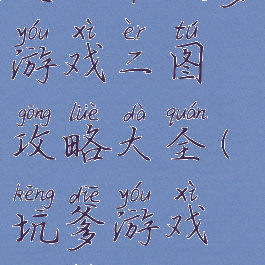 yóu xì èr tú
游戏二图
gōng lüè dà quán
攻略大全(
kēng diē yóu xì
坑爹游戏